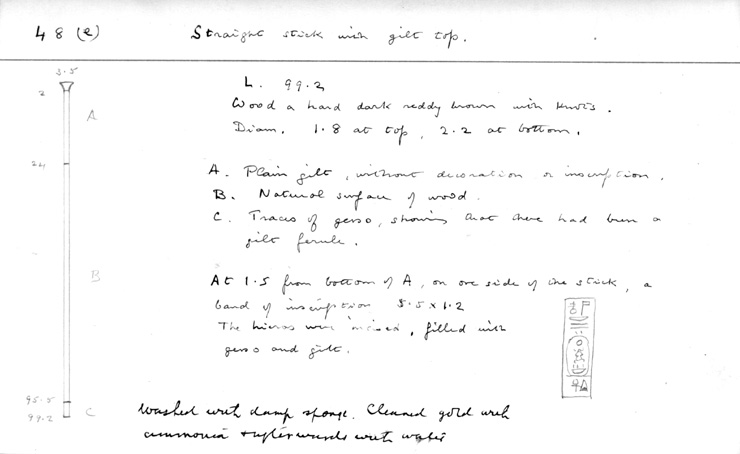 48 (e) Straight stick with gilt top.
3.5
2
A
24
B
95.5
99.2
C
L. 99.2
Wood a hard dark reddy brown with knots.
Diam. 1.8 at top, 2.2 at bottom.
A. Plain gilt, without decoration or inscription.
B. Natural surface of wood.
C. Traces of gesso, showing that there had been a
gilt ferule.
At 1.5 from bottom of A, on one side of the stick, a
band of inscription 5.5 x 1.2
The hieros were incised, filled with
gesso and gilt.
Washed with damp sponge. Cleaned gold with
ammonia + afterwards with water